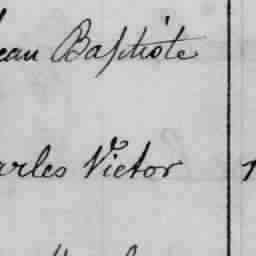 ean Baptiste
arles Victor